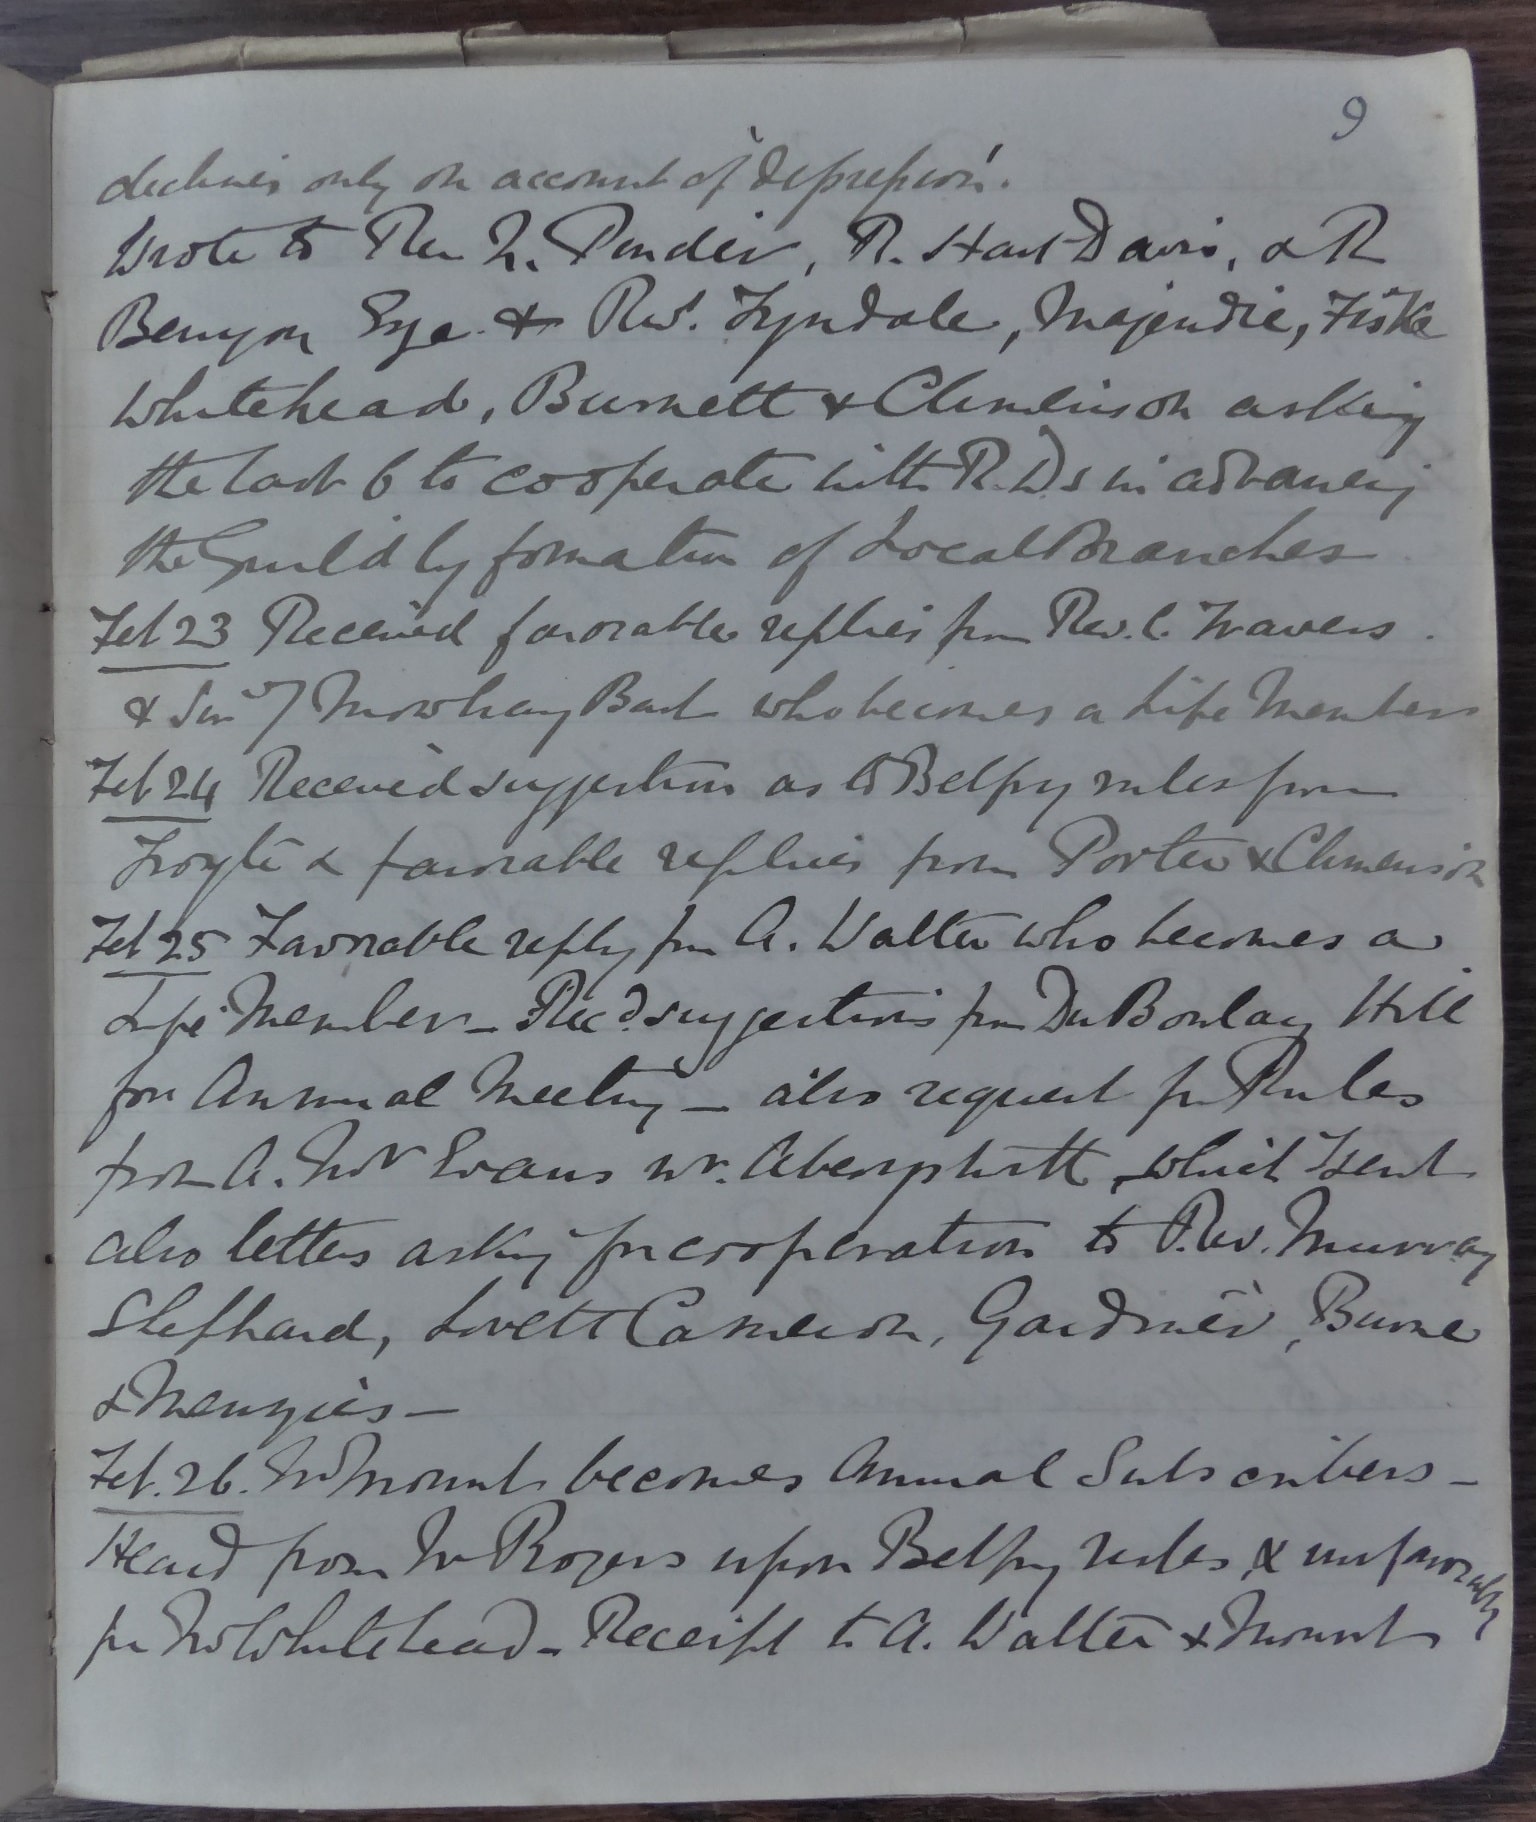 9
declines only on account of 'depression'.
Wrote to Rev. H. Ponder, R. Hart Davis, & R
Benyon Esqe. & Revs. Tyndale, Majendie, Fiske
Whitehead, Burnett & Climenson asking
the last 6 to cooperate with R.D.s in advancing
the Guild by formation of Local Branches
Feb 23 Received favorable replies from Rev. C. Travers.
& Mowbray Bart who becomes a Life Member
Feb 24 Received suggestions as to Belfry rules from
Troyte & favorable replies from Porter & Climenson
Feb 25 Favorable reply fm A. Walter who becomes a
Life Member – Recd. suggestions fm Du Boulay Hill
for Annual Meeting – also request for Rules
from A. Evans nr. which I sent
also letters asking for cooperation to Rev. Murray
Shephard, Lovett Cameron, Gardiner, Burne
& Menzies –
Feb. 26. Mr Mount becomes Annual Subscribers –
Heard from Mr Rogers upon Belfry rules, & unfavorably
fm Mr Whitehead – Receipt to A. Walter & Mount